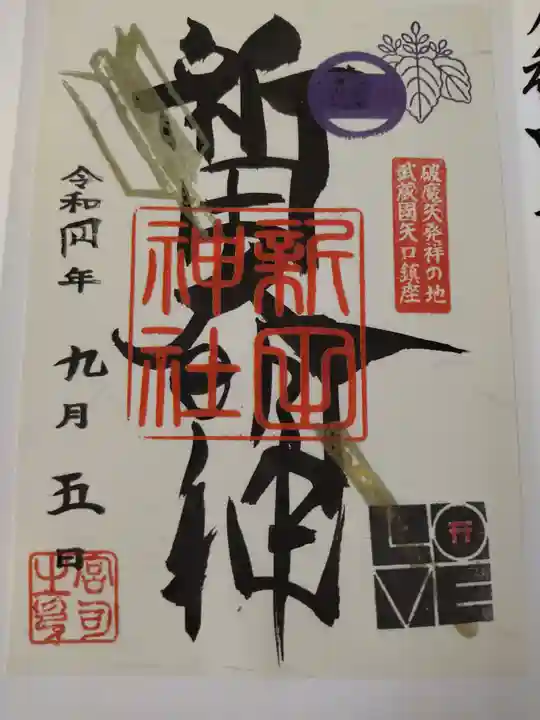 破魔矢発祥の地
武蔵國矢口鎮座
新田大明神
新田
神社
令和四年 九月 五日
宮司
之印
LO
VE